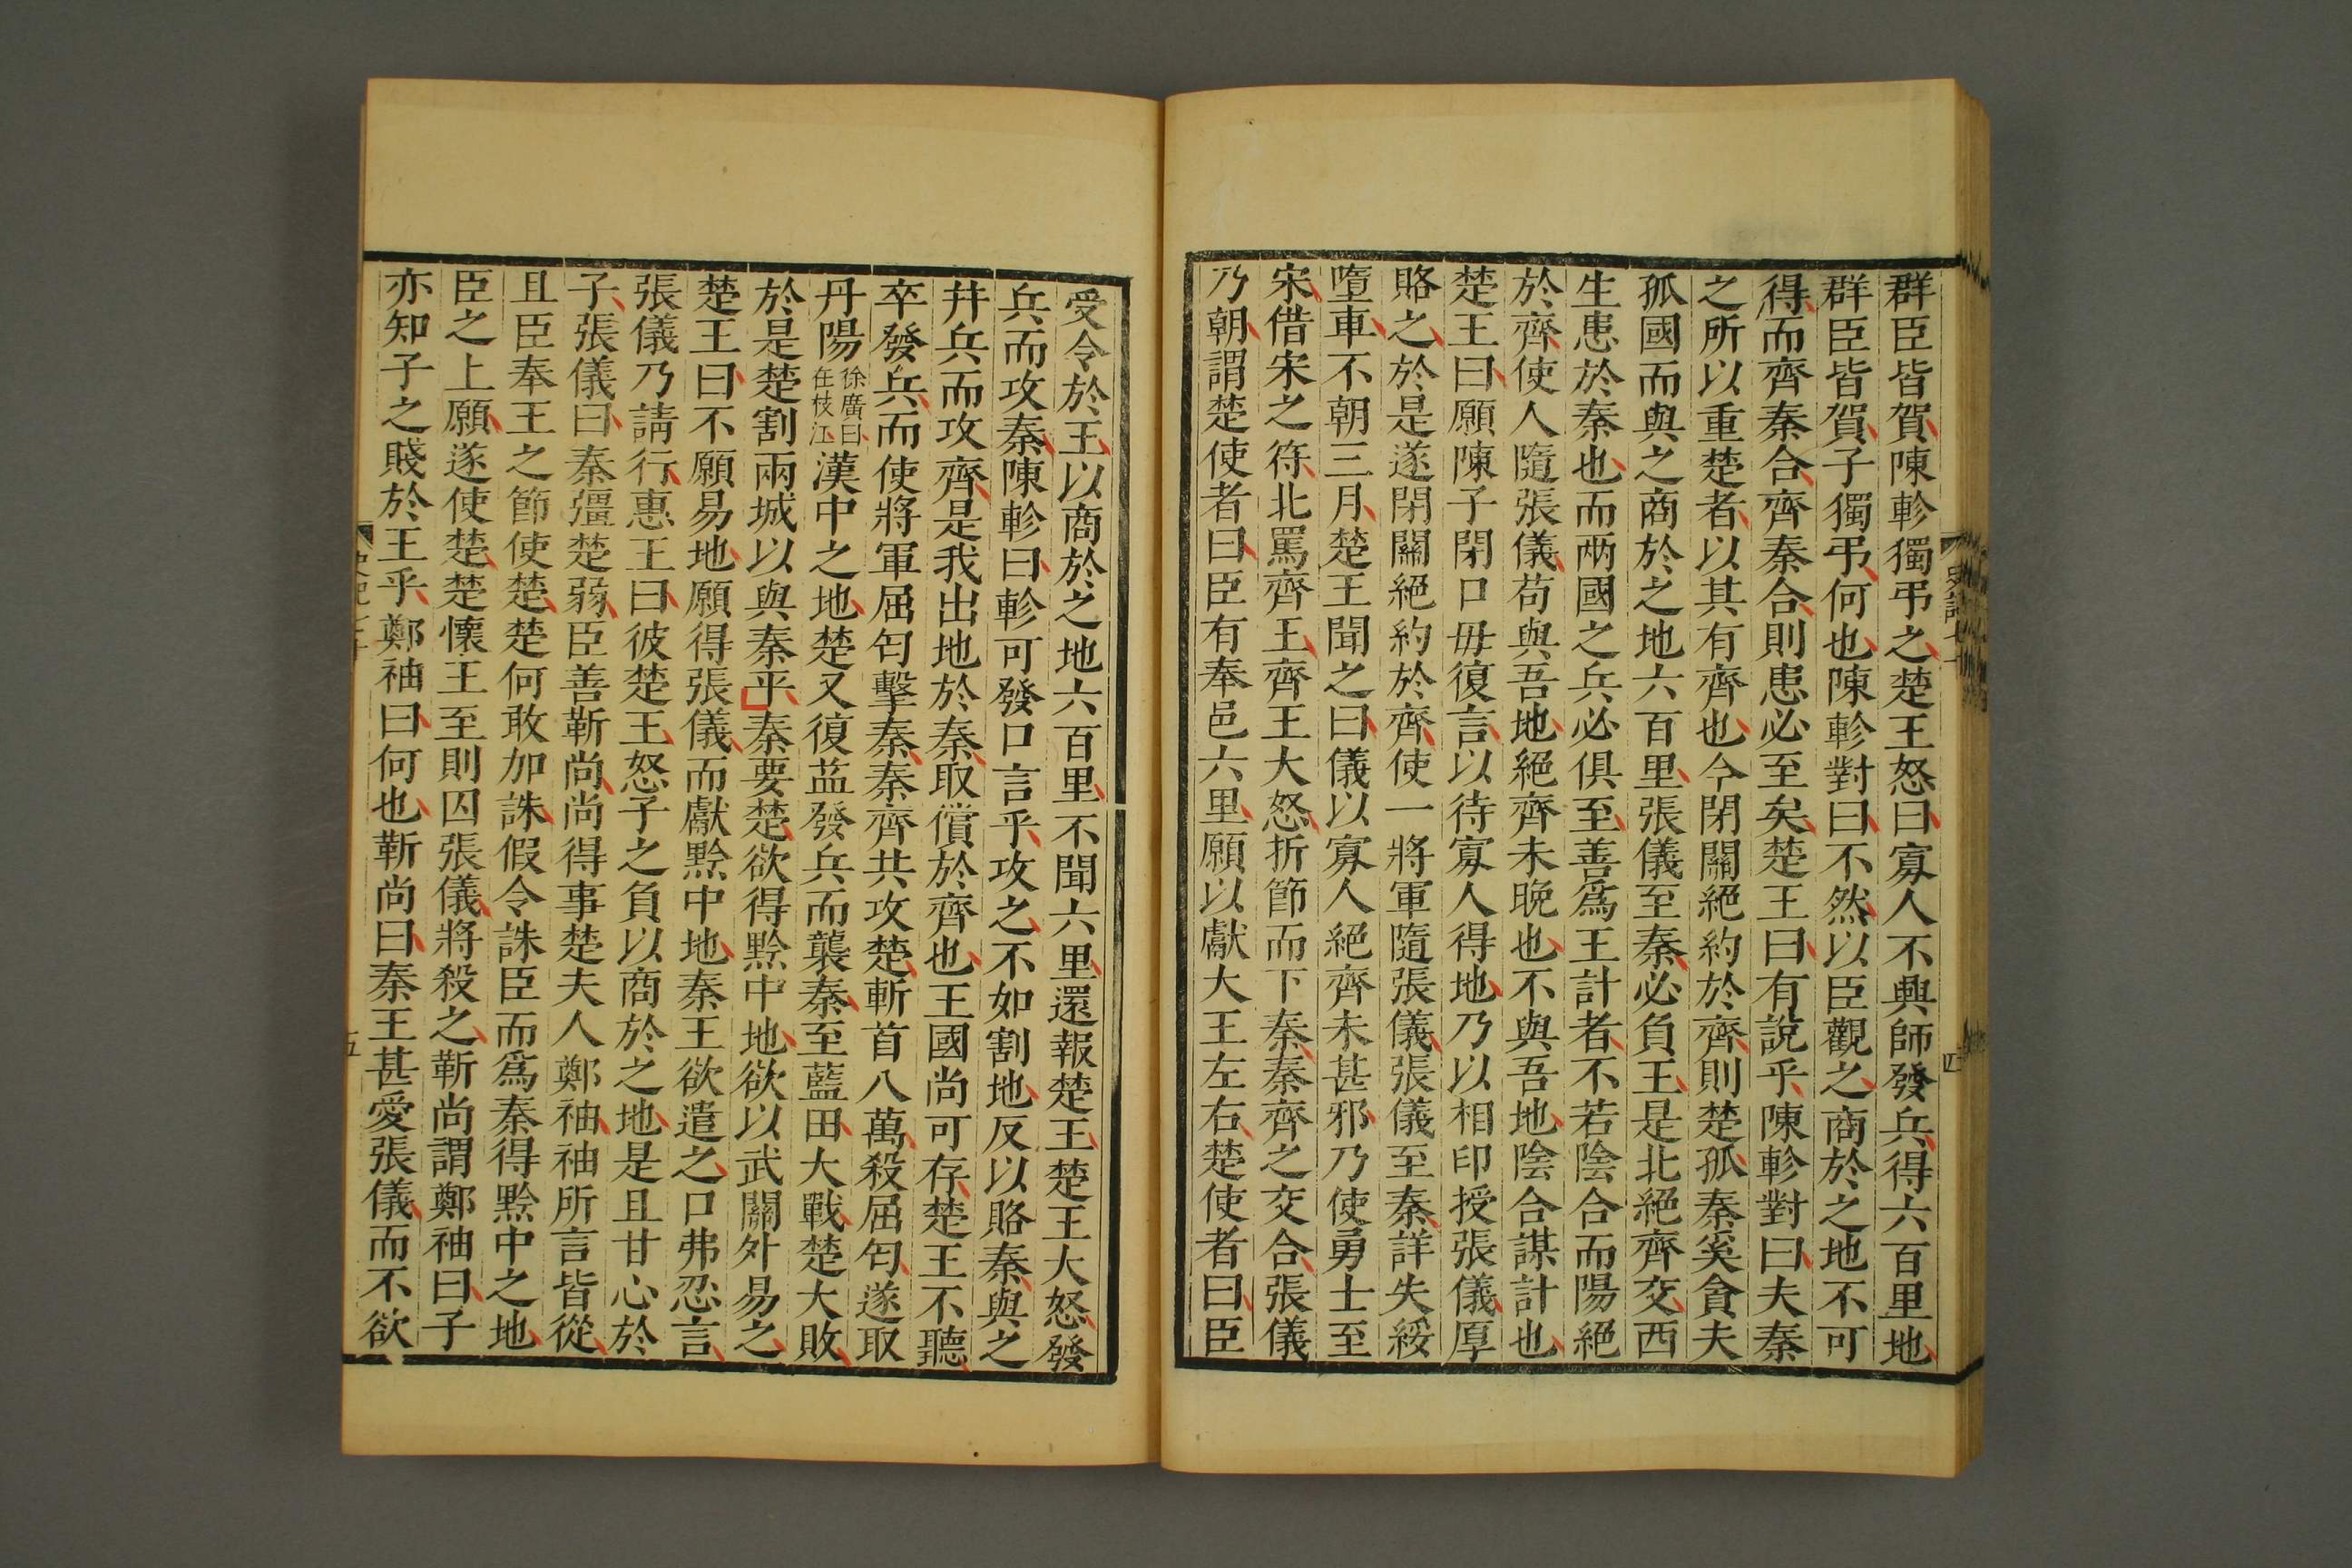 群臣皆賀陳軫獨弔之楚王怒曰寡人不興師發兵得六百里地
群臣皆賀子獨弔何也陳軫對曰不然以臣觀之商於之地不可
得而齊秦合齊秦合則患必至矣楚王曰有說乎陳軫對曰夫秦
之所以重楚者以其有齊也今閉關絕約於齊則楚孤秦奚貪夫
孤國而與之商於之地六百里張儀至秦必負王是北絕齊交西
生患於秦也而兩國之兵必俱至善爲王計者不若陰合而陽絕
於齊使人隨張儀苟與吾地絕齊未晚也不與吾地陰合謀計也
楚王曰願陳子閉口毋復言以待寡人得地乃以相印授張儀厚
賂之於是遂閉關絕約於齊使一將軍隨張儀張儀至秦詳失綏
墮車不朝三月楚王聞之曰儀以寡人絕齊未甚邪乃使勇士至
宋借宋之符北罵齊王齊王大怒折節而下秦秦齊之交合張儀
乃朝謂楚使者曰臣有奉邑六里願以獻大王左右楚使者曰臣
史記七十
四
受令於王以商於之地六百里不聞六里還報楚王楚王大怒發
兵而攻秦陳軫曰軫可發口言乎攻之不如割地反以賂秦與之
并兵而攻齊是我出地於秦取償於齊也王國尚可存楚王不聽
卒發兵而使將軍屈匄擊秦秦齊共攻楚斬首八萬殺屈匄遂取
丹陽徐廣曰在枝江漢中之地楚又復益發兵而襲秦至藍田大戰楚大敗
於是楚割兩城以與秦平秦要楚欲得黔中地欲以武關外易之
楚王曰不願易地願得張儀而獻黔中地秦王欲遣之口弗忍言
張儀乃請行惠王曰彼楚王怒子之負以商於之地是且甘心於
子張儀曰秦彊楚弱臣善靳尚尚得事楚夫人鄭袖袖所言皆從
且臣奉王之節使楚楚何敢加誅假令誅臣而爲秦得黔中之地
臣之上願遂使楚楚懷王至則囚張儀將殺之靳尚謂鄭袖曰子
亦知子之賤於王乎鄭袖曰何也靳尚曰秦王甚愛張儀而不欲
史記七十
五